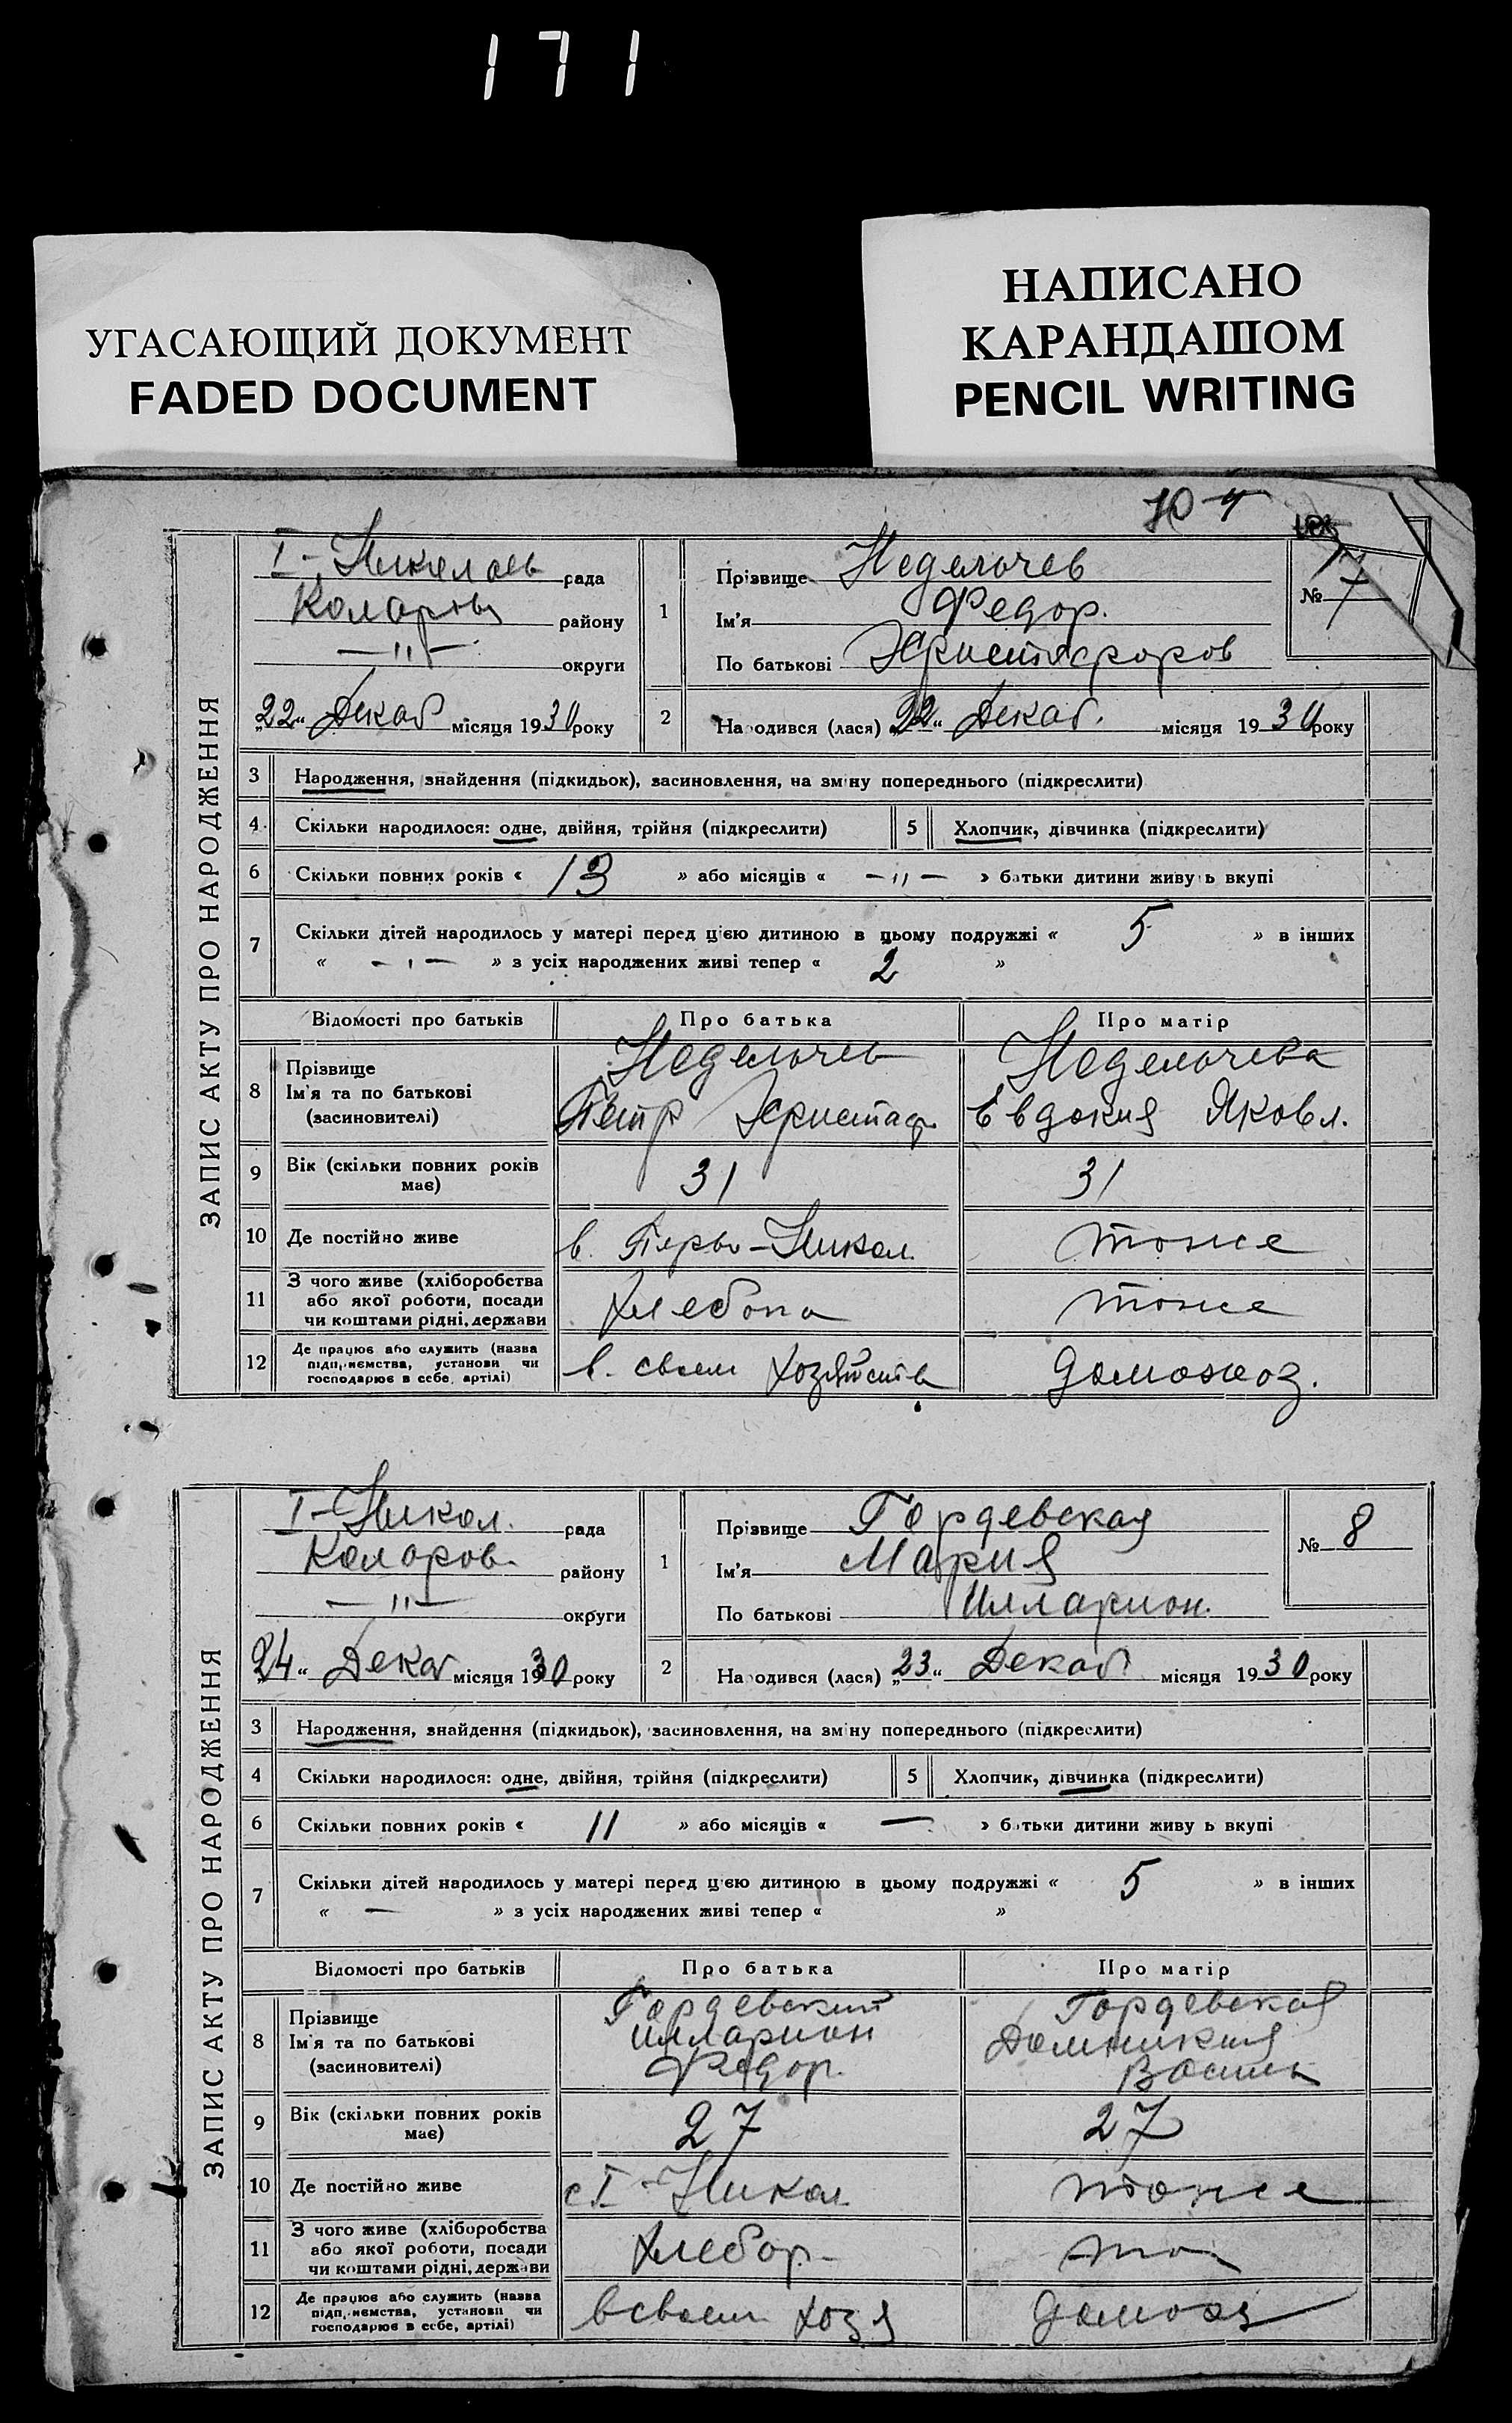 171
УГАСАЮЩИЙ ДОКУМЕНТ
FADED DOCUMENT
НАПИСАНО
КАРАНДАШОМ
PENCIL WRITING
ЗАПИС АКТУ ПРО НАРОДЖЕННЯ
І-Николаев рада
Коларов району
—„— округи
„22“ Декаб місяця 1930 року
1 Прізвище Недельчев
Ім'я Федор.
По батькові Христофоров
№ 7
2 Народився (лася) „22“ Декаб. місяця 1930 року
3 Народження, знайдення (підкидьок), засиновлення, на зміну попереднього (підкреслити)
4 Скільки народилося: одне, двійня, трійня (підкреслити) 5 Хлопчик, дівчинка (підкреслити)
6 Скільки повних років « 13 » або місяців « —„— » батьки дитини живуть вкупі
7 Скільки дітей народилось у матері перед цією дитиною в цьому подружжі « 5 » в інших
« —„— » з усіх народжених живі тепер « 2 »
Відомості про батьків Про батька Про матір
8 Прізвище Ім'я та по батькові (засновителі) Недельчев Недельчева
Петр Христаф. Евдокия Яковл.
9 Вік (скільки повних років має) 31 31
10 Де постійно живе в. Перво-Никол. тоже
11 З чого живе (хліборобства або якої роботи, посади чи коштами рідні, держави Хлебопа тоже
12 Де працює або служить (назва підприємства, установи чи господарює в себе, артілі) в. своем хозяйстве домохоз.
ЗАПИС АКТУ ПРО НАРОДЖЕННЯ
І-Никол. рада
Коларов. району
—„— округи
„24“ Декаб місяця 1930 року
1 Прізвище Гордевская
Ім'я Мария
По батькові Илларион.
№ 8
2 Народився (лася) „23“ Декаб місяця 1930 року
3 Народження, знайдення (підкидьок), засиновлення, на зміну попереднього (підкреслити)
4 Скільки народилося: одне, двійня, трійня (підкреслити) 5 Хлопчик, дівчинка (підкреслити)
6 Скільки повних років « 11 » або місяців « — » батьки дитини живуть вкупі
7 Скільки дітей народилось у матері перед цією дитиною в цьому подружжі « 5 » в інших
« — » з усіх народжених живі тепер « »
Відомості про батьків Про батька Про матір
8 Прізвище Ім'я та по батькові (засиновителі) Гордевский Гордевская
Илларион Домникия
Федор. Василь
9 Вік (скільки повних років має) 27 27
10 Де постійно живе с. І-Никол. тоже
11 З чого живе (хліборобства або якої роботи, посади чи коштами рідні, держави Хлебор. то
12 Де працює або служить (назва підприємства, установи чи господарює в себе, артілі) в своем хозя домохоз